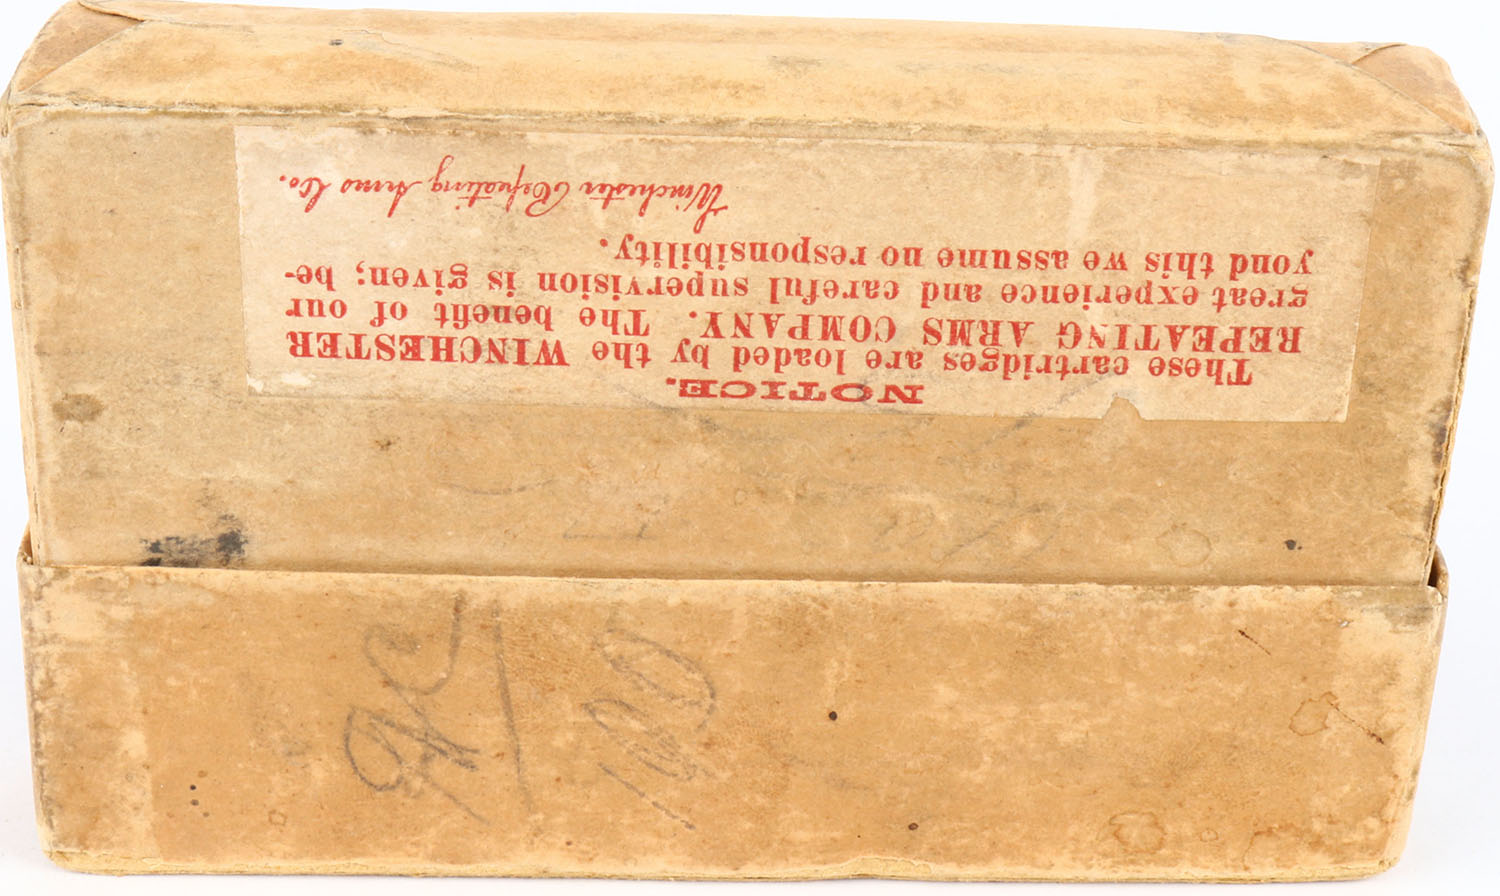 NOTICE.
These cartridges are loaded by the WINCHESTER
REPEATING ARMS COMPANY. The benefit of our
great experience and careful supervision is given; be-
yond this we assume no responsibility.
Winchester Repeating Arms Co.